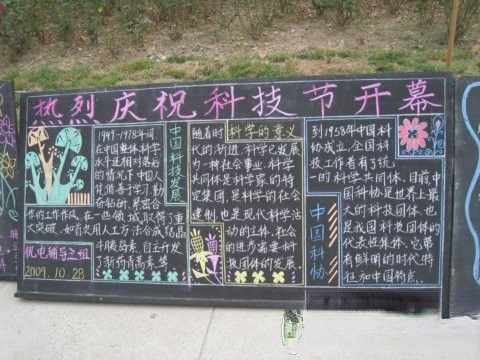 热烈庆祝科技节开幕
1949-1978年间
在中国整体科学
水平还相对落后
的情况下中国人
凭借善于学习、勤
奋钻研、紧密合
作的工作作风，在一些领域取得了重
大突破。如首次用人工方法合成结晶
牛胰岛素、自主研发
了新药青蒿素等
中国科技发展
机电辅导三组
2009.10.28
随着时
科学的意义
代的渐进，科学已发展
为一种社会事业，科学
共同体是科学家的特
定集团，是科学的社会
建制，也是现代科学活
动的主体，社会
的进步需要科
技团体的发展。
到1958年中国科
协成立，全国科
技工作者有了统
一的科学共同体，目前中
国科协是世界上最
大的科技团体，也
是我国科技团体的
代表性集体，它带
有鲜明的时代特
征和中国特点。
中国科协